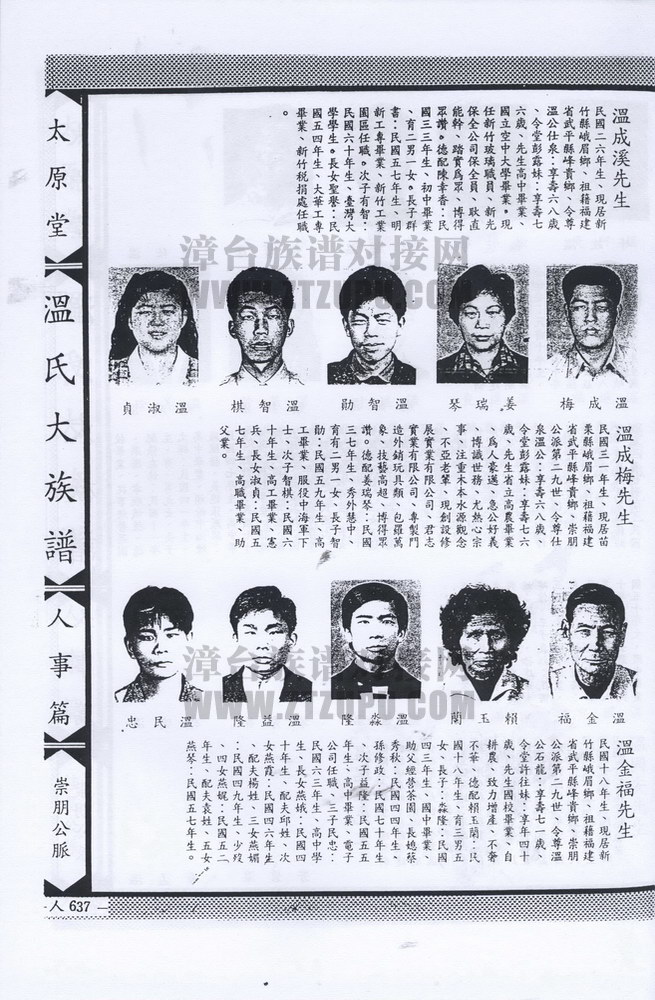 溫成溪先生
民國二六年生、現居新
竹縣峨眉鄉、祖籍福建
省武平縣峰貴鄉、令尊
溫公仕泉：享壽六八歲
、令堂彭露妹：享壽七
六歲、先生高中畢業、
國立空中大學畢業。現
任新竹玻璃職員、新光
保全公司保全員、耿直
能幹、踏實爲眾、博得
眾讚。德配陳幸香：民
國三三年生、初中畢業
、育二男一女。長子群
書：民國五七年生、明
新工專畢業、新竹工業
園區任職。次子有智：
民國六十年生、臺灣大
學學生。長女聖譽：民
國五四年生、大華工專
畢業、新竹稅捐處任職
。
梅成溫
琴瑞姜
勛智溫
棋智溫
貞淑溫
溫成梅先生
民國三一年生、現居苗
栗縣峨眉鄉、祖籍福建
省武平縣峰貴鄉、崇朋
公派第二九世、令尊仕
泉溫公：享壽六八歲、
令堂彭露妹：享壽七六
歲、先生省立高農畢業
、爲人豪邁、急公好義
、博識世務、尤熱心宗
事、注重木本水源觀念
、不亞老輩、現創設修
展實業有限公司、君志
實業有限公司、專製門
造外銷玩具類、包羅萬
象、技藝高超、博得眾
讚。德配姜瑞琴：民國
三七年生、秀外慧中、
育有二男一女、長子智
勛：民國五九年生、高
工畢業、服役中海軍下
士、次子智棋：民國六
十年生、高工畢業、憲
兵、長女淑貞：民國五
七年生、高職畢業、助
父業。
福金溫
蘭玉賴
隆淼溫
隆益溫
忠民溫
溫金福先生
民國十八年生、現居新
竹縣峨眉鄉、祖籍福建
省武平縣峰貴鄉、崇朋
公派第二九世、令尊溫
公石龍：享壽七一歲、
令堂許往妹：享年四十
歲、先生國校畢業、自
耕農、致力增產、不奢
不華、德配賴玉蘭：民
國十八年生、育三男五
女、長子：淼隆：民國
四三年生、國中畢業、
助父經營茶園、長媳蔡
秀秋：民國四四年生、
孫修政：民國七十年生
、次子益隆：民國五五
年生、高中畢業、電子
公司任職、三子民忠：
民國六三年生、高中學
生、長女燕娥：民國四
十年生、配夫邱姓、次
女燕霞：民國四六年生
、配夫楊姓、三女燕媚
：民國四九年生、少歿
、四女燕妮：民國五二
年生、配夫袁姓、五女
燕琴：民國五七年生。
太原堂
溫氏大族譜
人事篇
崇朋公脈
人 637
漳台族谱对接网
WWW.ZTZUPU.COM
漳台族谱对接网
WWW.ZTZUPU.COM